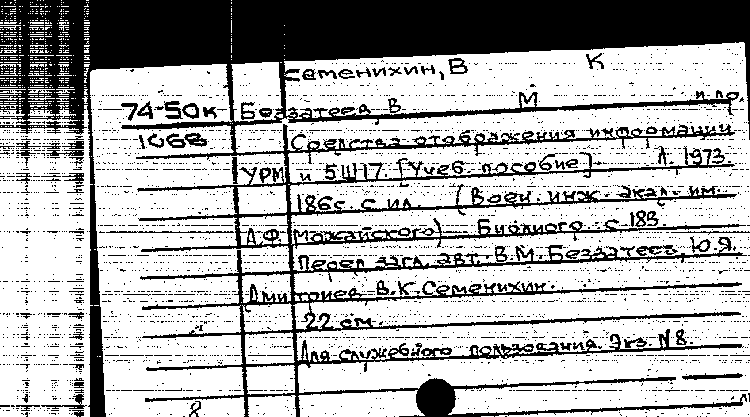 Семенихин, В К
74-50к Беззатеев, В М и др.
1068 Средства отображения информации
УРМ и 5Ш17. [Учеб. пособие]. Л. 1973.
186с. с ил. (Воен. инж. акад. им.
А.Ф. Можайского) Библиогр. с 183.
Перед загл. авт. В.М. Беззатеев, Ю.Я.
Дмитриев, В.К. Семенихин.
22 см.
Для служебного пользования. Экз. №8.
8